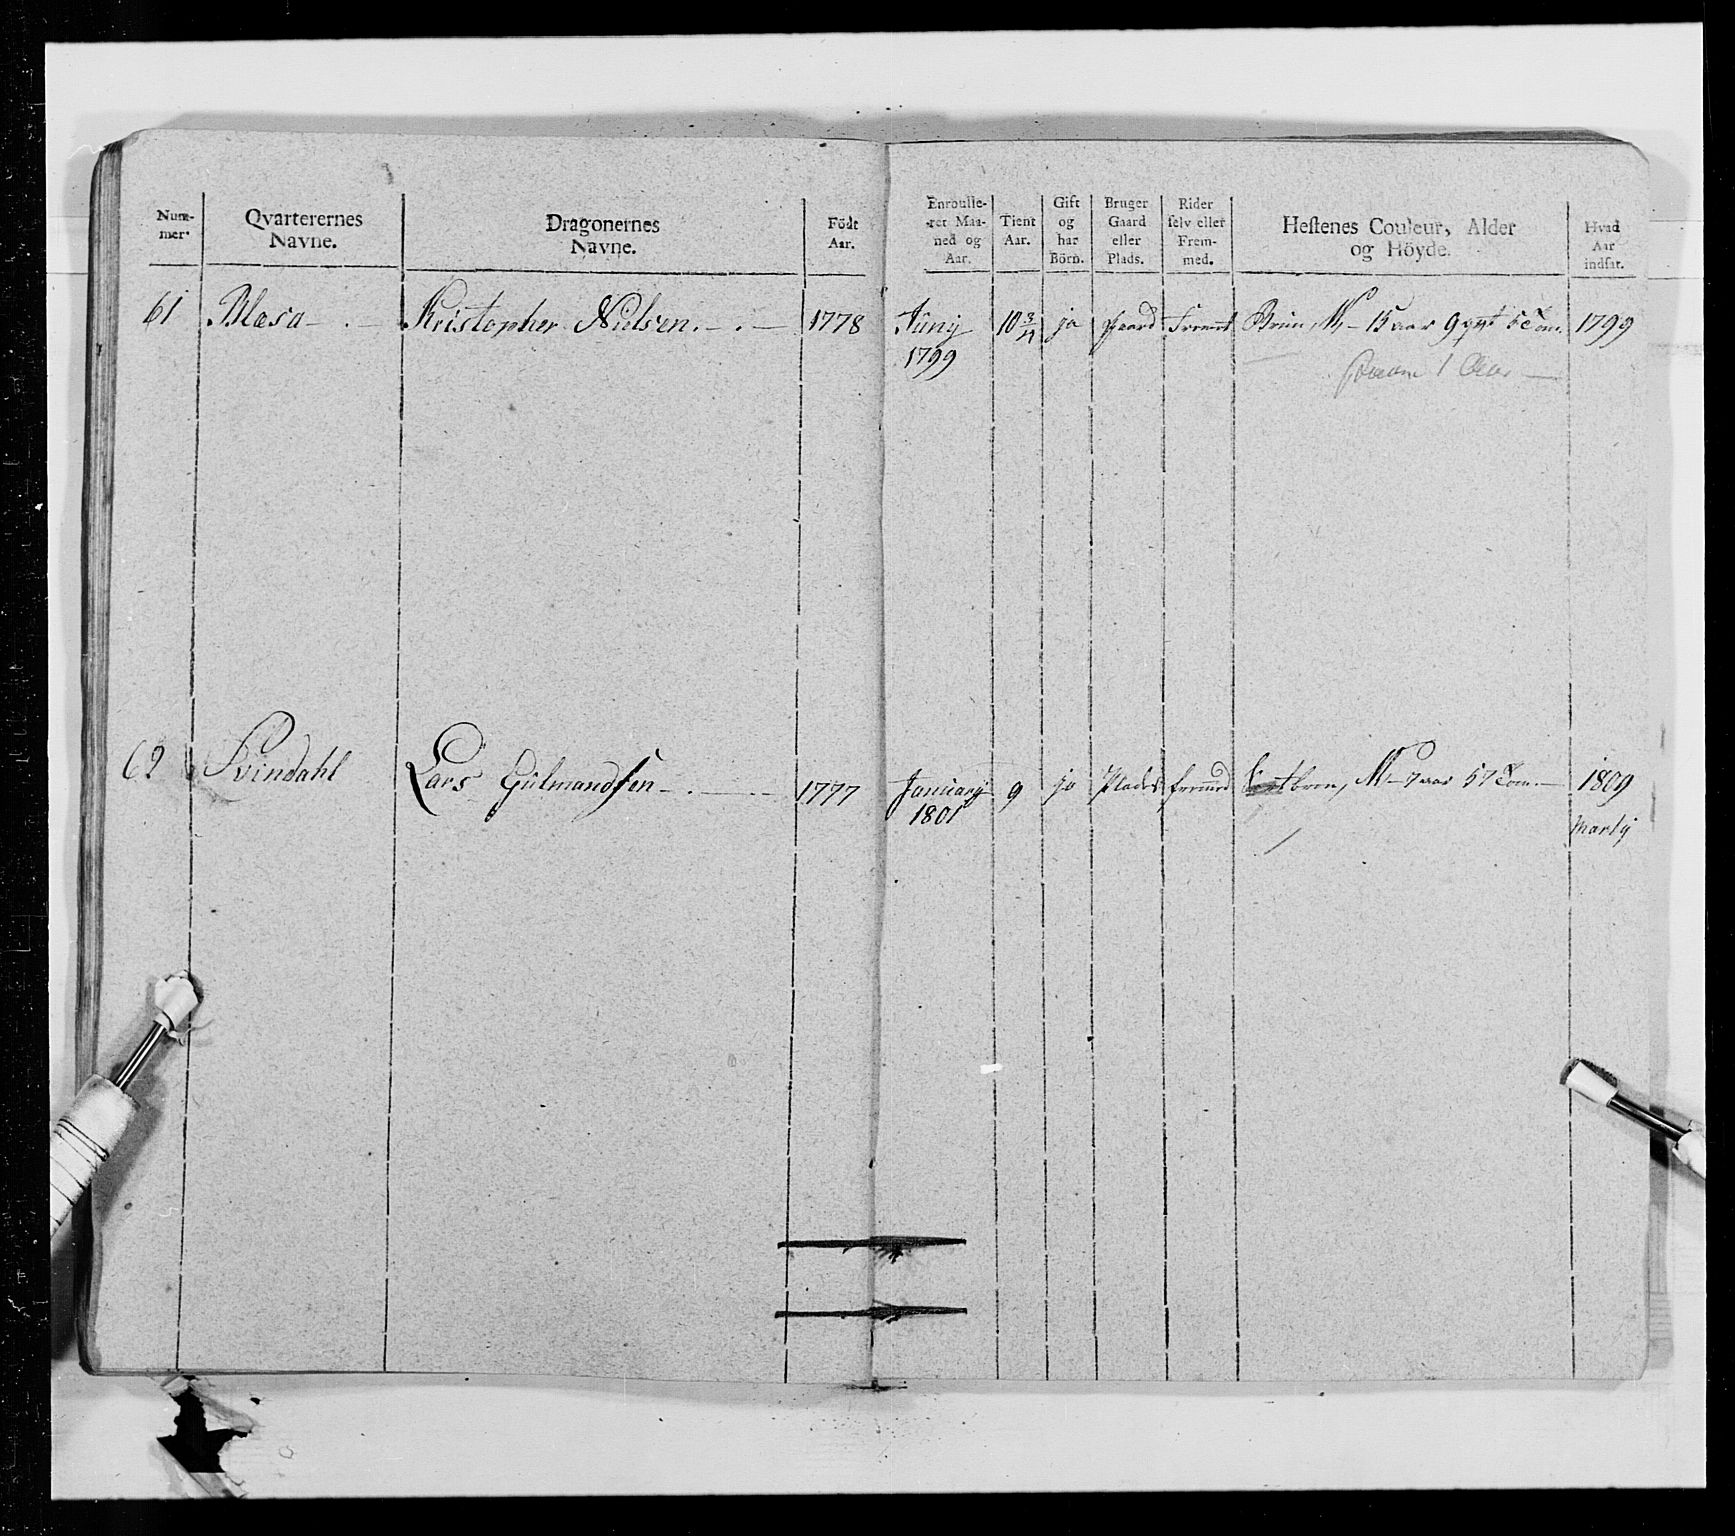 Num-
mer.
Qvarterernes
Navne.
Dragonernes
Navne.
Födt
Aar.
Enroulle-
ret Maa-
ned og
Aar.
Tient
Aar.
Gift
og
har
Börn.
Bruger
Gaard
eller
Plads.
Rider
selv eller
Frem-
med.
Hestenes Couleur, Alder
og Höyde.
Hvad
Aar
indsat.
61 Blæsa Kristopher Nielsen 1778 Junij 10 3/4 ja Gaard Fremd Brun, M, 15 aar 9 qrt 5 Tom. 1799
1799
1 Aar
62 Svindahl Lars Gulmandsen 1777 January 9 ja Plads fremd M 7 aar 57 Tom. 1809
1801
Martij